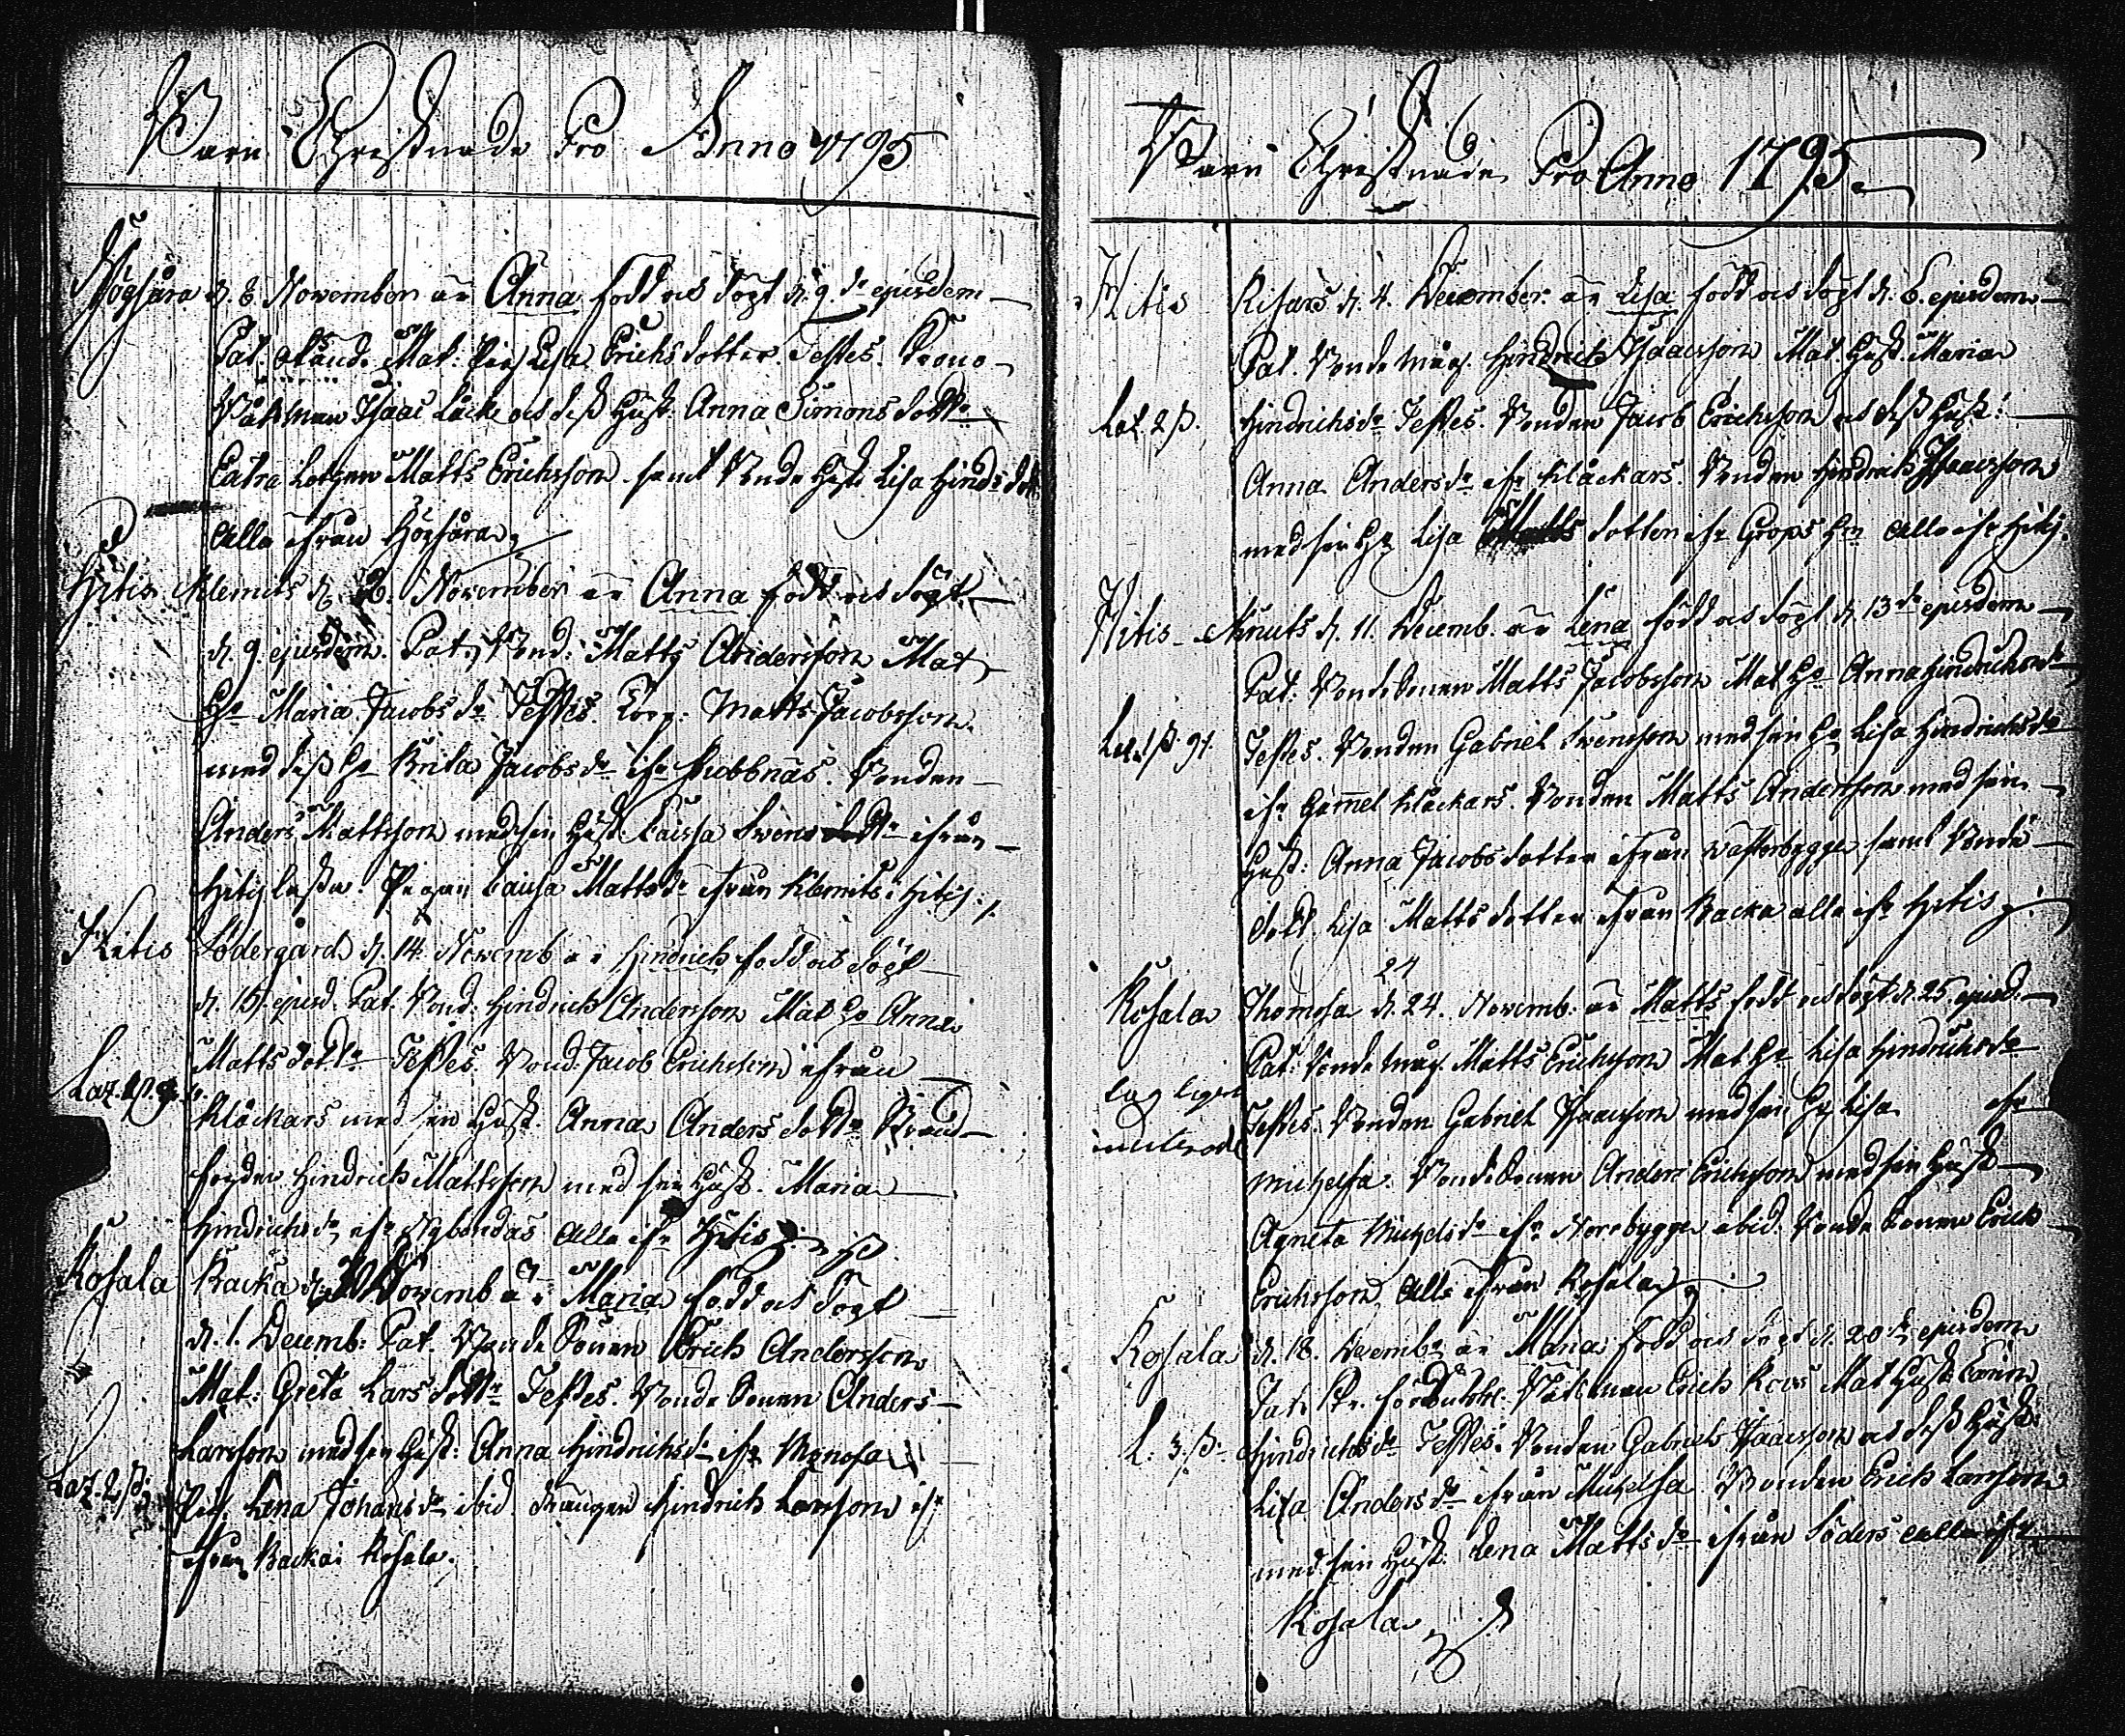 Barn Christnade Pro Anno 1795
Högsåra d. 8 November är Anna född och döpt d. 9de ejusdem
Pat: okänd. Mat: Pig. Lisa Erichsdotter. Testes. Krono-
Båtsman Isaac Läck och dess Hust. Anna Simons dottr
Catra Lotsen Matts Erichsson samt Bonde Hust. Lisa Hindrs dott
Alla ifrån Högsåra
Hitis Klemets d. 8. November är Anna född och döpt
d. 9. ejusdem. Pat. Bond: Matts Andersson Mat
Ho Maria Jacobs dr Testes. Torp. Matts Jacobsson
med dess Ho Brita Jacobs dr ifr Stubbnäs. Bonden
Anders Mattsson med sin Hust. Caisa Svens dottr ifrån
Hitis Pigan Caisa Matts dr ifrån Klemets i Hitis
Hitis Södergård d. 14. Novemb är Hindrich född och döpt
d. 15. ejusd. Pat. Bond: Hindrich Andersson Mat Ho Anna
Matts dottr Testes. Bond. Jacob Erichsson ifrån
Laz. 
Klåckars med sin Hust. Anna Anders dottr
Hindrich Mattsson med sin Hust. Maria
Hindrichs dr ifr Nybondas Alla ifr Hitis
Rosala Backa d. 30 Novemb är Maria född och döpt
d. 1. Decemb: Pat. Bonde Sonen Erich Andersson
Mat: Greta Lars dottr Testes. Bonde Sonen Anders
Larsson med sin Hust: Anna Hindrichsdr ifr
Laz. 2 ß. Pig. Lena Johans dr ibid. Drängen Hindrich Larsson ifr
ifrån Backa i Rosala.
Barn Christnade Pro Anno 1795.
Hitis Risars d. 4. December är Lisa född och döpt d. 6. ejusdem
Pat. Bonde måg. Hindrich Isaacsson Mat. Hust. Maria
Laz. 2 ß. Hindrichs dr Testes. Bonden Jacob Erichsson och dess Hust.
Anna Anders dr ifr Klåckars. Bonden Hindrich Isaacsson
med sin Ho Lisa Matts dotter ifr Grops Alla ifr Hitis.
Hitis Knuts d. 11. Decemb. är Lena född och döpt d. 13de ejusdem
Pat. Bonde Sonen Matts Jacobsson Mat Ho Anna Hindrichsdr
Laz. 1 ß. Testes. Bonden Gabriel Svensson med sin Ho Lisa Hindrichsdr
ifr Gammel Klåckars. Bonden Matts Andersson med sin
Hust: Anna Jacobs dotter ifrån Västerbygge samt Bonde
dott. Lisa Matts dotter ifrån Backa alla ifr Hitis
24
Rosala Thomosa d. 24. Novemb. är Matts född och döpt d. 25. ejusd.
Pat: Bonde måg. Matts Erichsson Mat Ho Lisa Hindrichsdr
Testes. Bonden Gabriel Isaacsson med sin Ho Lisa ifr
Michelsa. Bonde Sonen Anders Erichsson med sin Hust
Agneta Michels dr ifr Norrbygge ibid. Bonde Sonen Erich
Erichsson, Alla ifrån Rosala
Rosala d. 18. Decemb är Maria född och döpt d. 20de ejusdem
Pat. Båtsman Erich Roos Mat Hust. Carin
L. 3 ß. Hindrichs dr Testes. Bonden Gabriel Isaacsson och dess Hust.
Lisa Anders dr ifrån Michelsa. Bonden Erich Larsson
med sin Hust. Lena Matts dr ifrån Söders alla ifr
Rosala